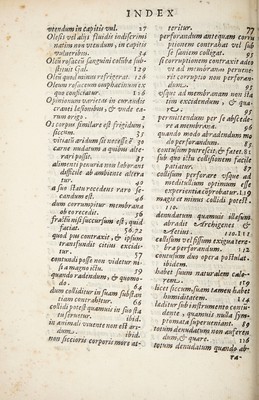 INDEX
vtendum in capitis vul. 27
Olesti vel alij fluidi indiserimi
natim non vtendum, in capitis
volneribus. 24
Oleũ rosaceũ sanguini cohibẽ sub
stituit Gal. 129
Oleũ quod minus refrigerat. 126
Oleum rosaceum omphacinum ex
quo conficiatur. 126
Opinionum varietas in curandis
cranei lesionibus, & vnde ea-
rum origo. 2
Os corpus similare est frigidum,
siccum. 37
vitiati aridum sit necesse 70
carne nudatum a quibus alte-
rari possit. 37
alimenti penuria non laborans
difficile ab ambiente altera
tur. 40
a suo statu recedens raro se-
candum est. 46
dum corrumpitur membrana
ab eo recedit. 36
fractũ nisi succursum est, quid
faciat. 56.72
quod pus contraxit, & ipsum
transfundit citius exciditur. 57
contundi posse non videtur ni-
si a magno ictu. 59
quando radendum, & quomo-
do. 61
dum colliditur in suam substan
tiam contrahitur. 66
collidi potest quamuis in suo sta
tu seruetur. ibid.
in animali viuente non est ari-
dum. ibid.
non sectoris corporis mora at-
teritur. 77
perforandum antequam corru
ptionem contrahat vel sub
se saniem colligat. 83
si corruptionem contraxit adeo
vt ad membranam peruene-
rit corruptio non perforan-
dum. ibid.
vsque ad membranam non sta
tim excidendum, & qua-
re. 95
perforandum non per se abscede
re a membrana. 96
quando modo abradendum mo
do perforandum. ibid.
contusum putrescit, & facet. ib.
sub quo ictu collisionem facile
patiatur. 97
collisum perforare vsque ad
meditullium optimum esse
experientia cõprobatur. 119
magis et minus collidi potest.
110.
denudatum quamuis illæsum
abradit Archigenes &
Aetius. 110.111
collisum vel fissum exiguatere-
bra perforandum. ibid.
contusum duo opera postulat.
ibidem.
habet suum naturalem calo-
rem. 119
licet siccum suam tamen habet
humiditatem. 114
læditur sub instrumento contu-
dente, quamuis nulla sym-
ptomata superueniant. 89
totum denudatum non auferen
dum, & quare. 116
totum denudatum quando ab-
ra-